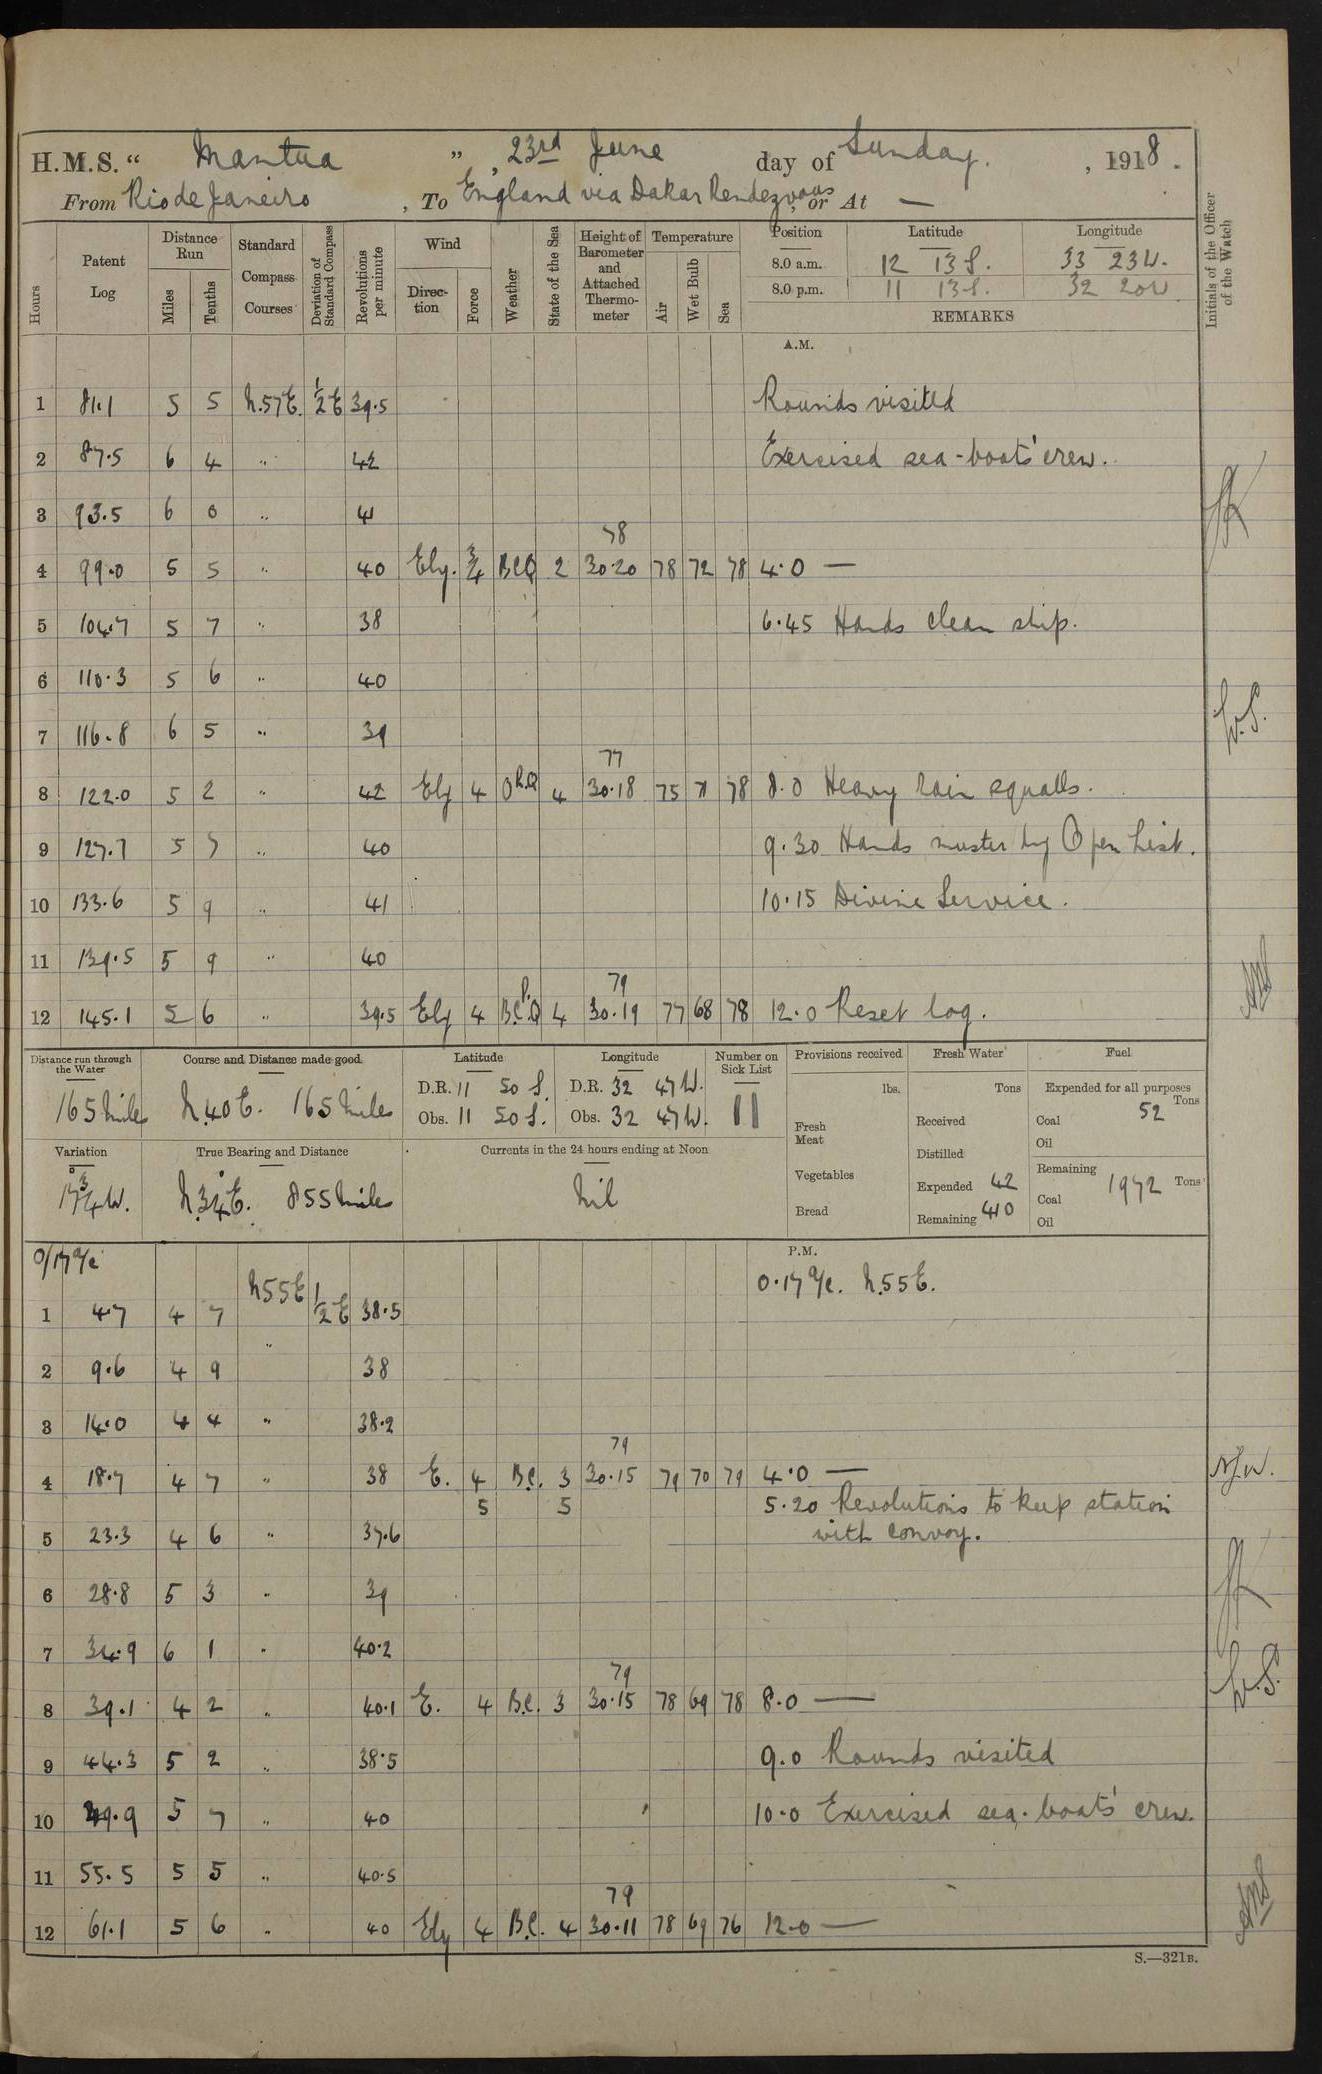 H.M.S. “ Mantua ” , 23rd June day of Sunday. , 1918.
From Rio de Janeiro , To England via Dakar Rendezvous, or At —
Hours
Patent Log
Distance Run
Miles
Tenths
Standard Compass Courses
Deviation of Standard Compass
Revolutions per minute
Wind
Direction
Force
Weather
State of the Sea
Height of Barometer and Attached Thermometer
Temperature
Air
Wet Bulb
Sea
Position Latitude Longitude
8.0 a.m. 12 13 S. 33 23 W.
8.0 p.m. 11 13 S. 32 20 W
REMARKS
Initials of the Officer of the Watch
A.M.
1 81.1 5 5 N.57E. 1/2 E 39.5 Rounds visited
2 87.5 6 4 " 42 Exercised sea-boats' crew.
3 93.5 6 0 " 41
78
4 99.0 5 5 " 40 Ely. 3/4 BCQ 2 30.20 78 72 78 4.0 —
5 104.7 5 7 " 38 6.45 Hands clean ship.
6 110.3 5 6 " 40
7 116.8 6 5 " 39 W.S.
77
8 122.0 5 2 " 42 Ely 4 ORQ 4 30.18 75 71 78 8.0 Heavy rain squalls.
9 127.7 5 7 " 40 9.30 Hands muster by Open List.
10 133.6 5 9 " 41 10.15 Divine Service.
11 139.5 5 9 " 40
79
12 145.1 5 6 " 39.5 Ely 4 B.C.P.Q 4 30.19 77 68 78 12.0 Reset log.
Distance run through the Water
165 miles
Course and Distance made good
N.40E. 165 miles
Latitude
D.R. 11 50 S.
Obs. 11 50 S.
Longitude
D.R. 32 47 W.
Obs. 32 47 W.
Number on Sick List
11
Provisions received
lbs.
Fresh Meat
Vegetables
Bread
Fresh Water
Tons
Received
Distilled
Expended 42
Remaining 410
Fuel
Expended for all purposes
Tons
Coal 52
Oil
Remaining
Coal 1972 Tons
Oil
Variation
17 3/4° W.
True Bearing and Distance
N.34°E. 855 miles
Currents in the 24 hours ending at Noon
Nil
P.M.
0/17 a/c 0.17 a/c. N.55E.
1 4.7 4 7 N55E 1/2 E 38.5
2 9.6 4 9 " 38
3 14.0 4 4 " 38.2
79
4 18.7 4 7 " 38 E. 4 B.C. 3 30.15 79 70 79 4.0 —
5 5 5.20 Revolutions to keep station
5 23.3 4 6 " 37.6 with convoy.
6 28.8 5 3 " 39
7 34.9 6 1 " 40.2
79
8 39.1 4 2 " 40.1 E. 4 B.C. 3 30.15 78 69 78 8.0 — W.S.
9 44.3 5 2 " 38.5 9.0 Rounds visited
10 49.9 5 7 " 40 10.0 Exercised sea-boats' crew.
11 55.5 5 5 " 40.5
79
12 61.1 5 6 " 40 Ely 4 B.C. 4 30.11 78 69 76 12.0 —
S.—321B.